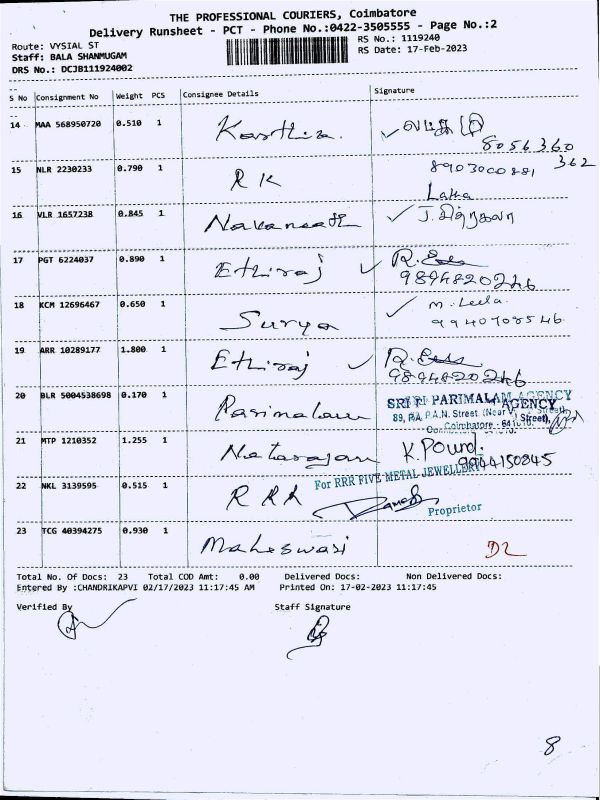 THE PROFESSIONAL COURIERS, Coimbatore
Delivery Runsheet - PCT - Phone No.:0422-3505555 - Page No.:2
Route: VYSIAL ST RS No.: 1119240
Staff: BALA SHANMUGAM RS Date: 17-Feb-2023
DRS No.: DCJB111924002
S No Consignment No Weight PCS Consignee Details Signature
14 MAA 568950720 0.510 1 Karthika.
8056 360
362
15 NLR 2230233 0.790 1 R K 8903000881
Latha
16 VLR 1657238 0.845 1 Navaneeth
17 PGT 6224037 0.890 1 Ethiraj R.
9894820246
18 KCM 12696467 0.650 1 Surya M. Leela.
9940708546
19 ARR 10289177 1.800 1 Ethiraj R.
9894820246
20 BLR 5004538698 0.170 1 Parimalam SRI PARIMALAM AGENCY
89, P.A.N. Street, (Near Street),
Coimbatore - 641
21 MTP 1210352 1.255 1 Natarajan K.
9944150845
22 NKL 3139595 0.515 1 R R R For RRR FIVE METAL JEWELLERY
Proprietor
23 TCG 40394275 0.930 1 Maheswari D2
Total No. Of Docs: 23 Total COD Amt: 0.00 Delivered Docs: Non Delivered Docs:
Entered By :CHANDRIKAPVI 02/17/2023 11:17:45 AM Printed On: 17-02-2023 11:17:45
Verified By Staff Signature
8